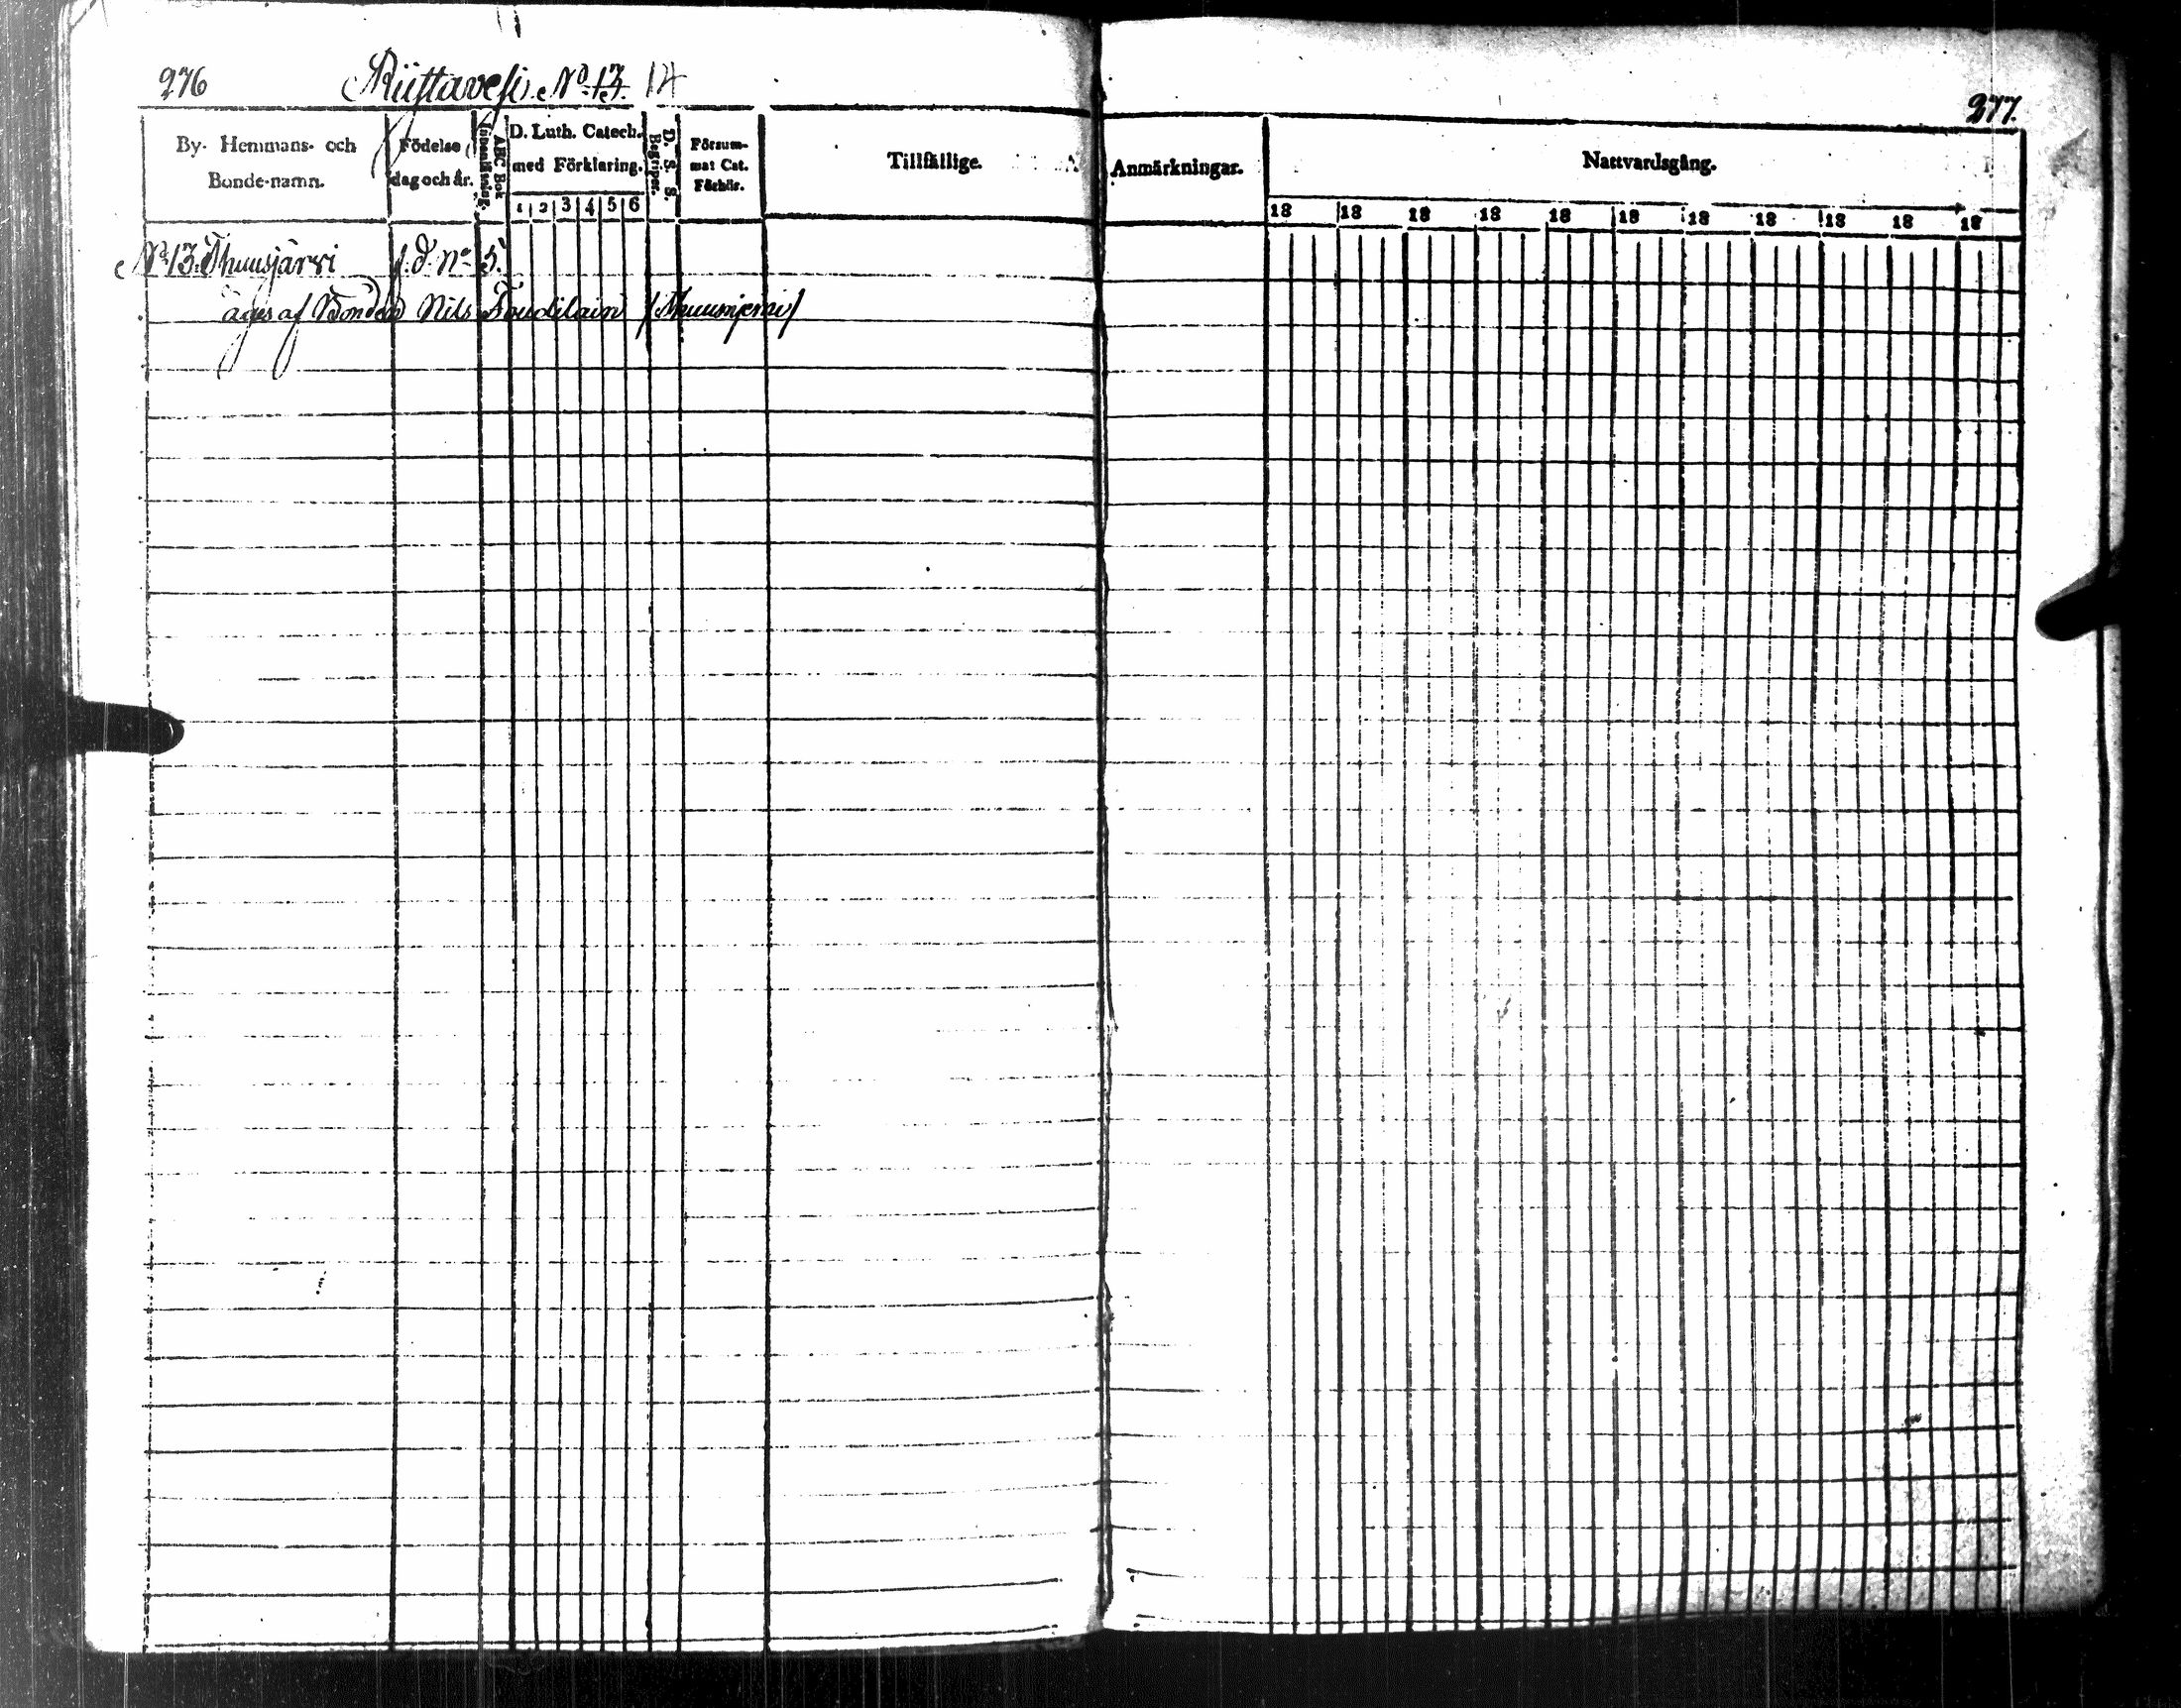 276 Riistavesi No 13. 14
277.
By- Hemmans- och Bonde-namn.
Födelse dag och år.
ABC Bok Innanläsning.
D. Luth. Catech. med Förklaring.
1 2 3 4 5 6
D. S. S. Begriper.
Försum-mat Cat. Förhör.
Tillfällige.
Anmärkningar.
Nattvardsgång.
18 18 18 18 18 18 18 18 18 18 18
No 13. f. d. No 5.
äges af Bonden Nils